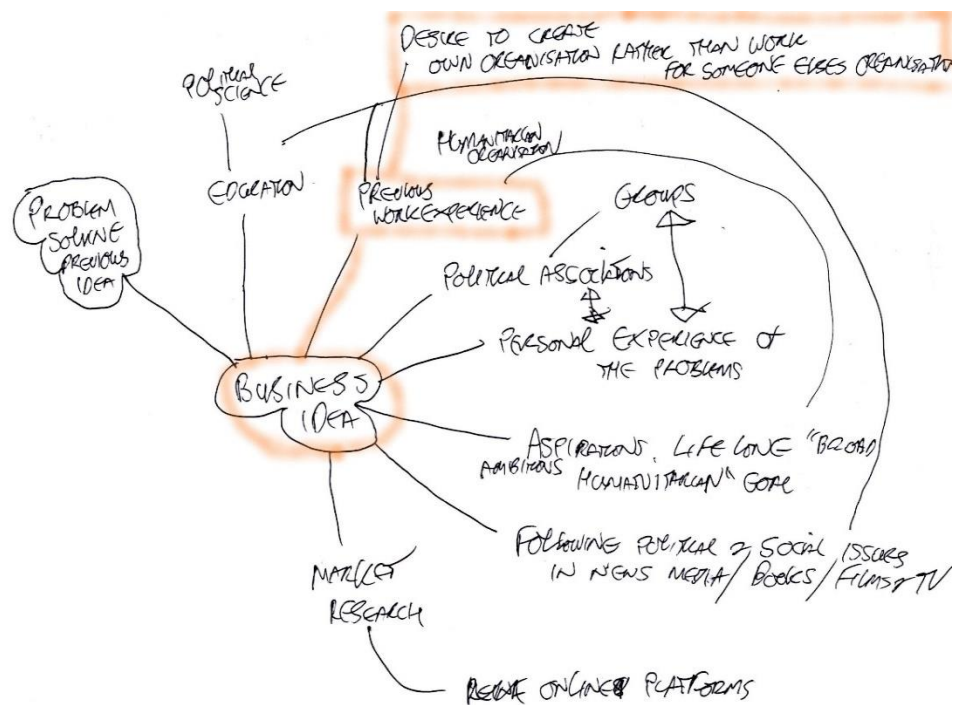 DESIRE TO CREATE
OWN ORGANISATION RATHER THAN WORK
FOR SOMEONE ELSES ORGANISATION
POLITICAL
SCIENCE
HUMANITARIAN
ORGANISATION
EDUCATION
PREVIOUS
WORK EXPERIENCE
GROUPS
PROBLEM
SOLVING
PREVIOUS
IDEA
POLITICAL ASSOCIATIONS
PERSONAL EXPERIENCE OF
THE PROBLEMS
BUSINESS
IDEA
ASPIRATIONS, LIFE LONG "BROAD
AMBITIONS HUMANITARIAN" GOAL
FOLLOWING POLITICAL & SOCIAL ISSUES
IN NEWS MEDIA/ BOOKS/ FILMS & TV
MARKET
RESEARCH
ONLINE PLATFORMS